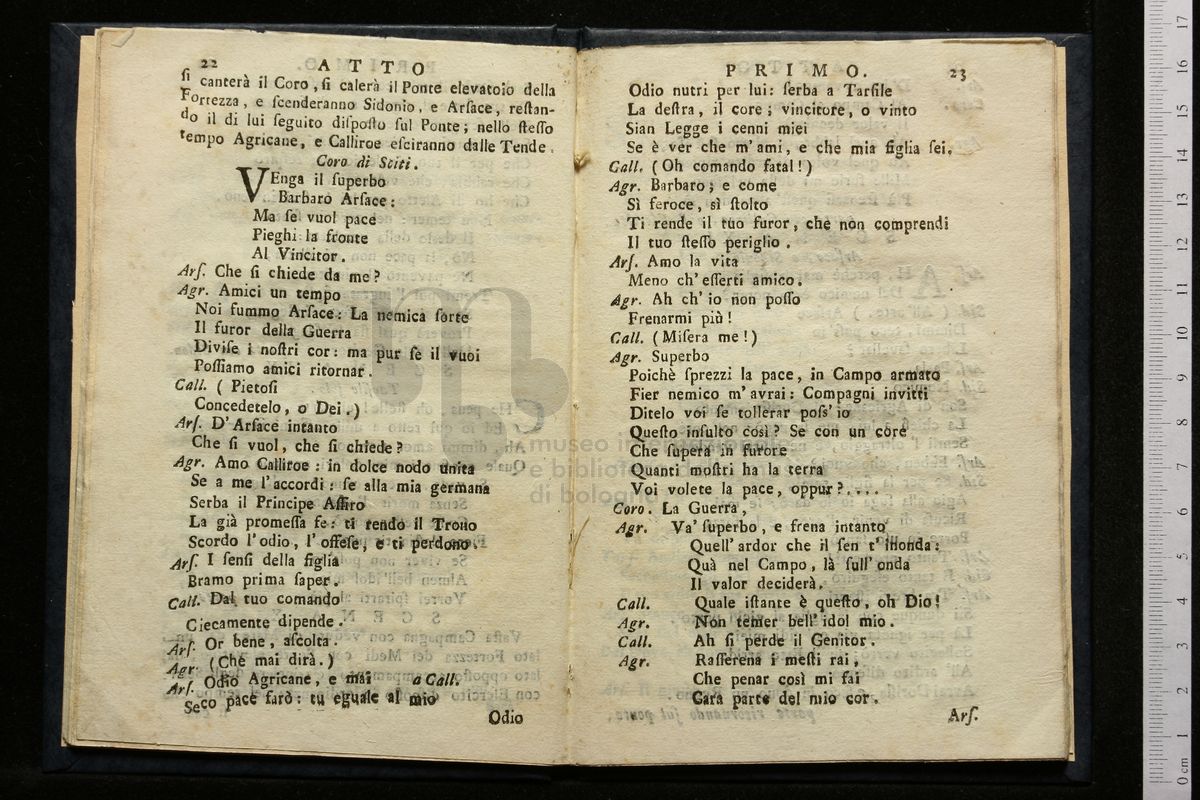 22 ATTO
ſi canterà il Coro, ſi calerà il Ponte elevatoio della
Fortezza, e ſcenderanno Sidonio, e Arſace, reſtan-
do il di lui ſeguito diſpoſto ſul Ponte; nello ſteſſo
tempo Agricane, e Calliroe eſciranno dalle Tende.
Coro di Sciti.
VEnga il ſuperbo
Barbaro Arſace:
Ma ſe vuol pace
Pieghi la fronte
Al Vincitor.
Arſ. Che ſi chiede da me?
Agr. Amici un tempo
Noi fummo Arſace: La nemica ſorte
Il furor della Guerra
Diviſe i noſtri cor: ma pur ſe il vuoi
Poſſiamo amici ritornar.
Call. (Pietoſi
Concedetelo, o Dei.)
Arſ. D'Arſace intanto
Che ſi vuol, che ſi chiede?
Agr. Amo Calliroe: in dolce nodo unita
Se a me l'accordi: ſe alla mia germana
Serba il Principe Aſſiro
La già promeſſa fe: ti rendo il Trono
Scordo l'odio, l'offeſe, e ti perdono.
Arſ. I ſenſi della figlia
Bramo prima ſaper.
Call. Dal tuo comando
Ciecamente dipende.
Arſ. Or bene, aſcolta.
Agr. (Che mai dirà.)
Arſ. Odio Agricane, e mai a Call.
Seco pace farò: tu eguale al mio
Odio
PRIMO. 23
Odio nutri per lui: ſerba a Tarſile
La deſtra, il core; vincitore, o vinto
Sian Legge i cenni miei
Se è ver che m'ami, e che mia figlia ſei.
Call. (Oh comando fatal!)
Agr. Barbaro; e come
Sì feroce, sì ſtolto
Ti rende il tuo furor, che non comprendi
Il tuo ſteſſo periglio.
Arſ. Amo la vita
Meno ch'eſſerti amico.
Agr. Ah ch'io non poſſo
Frenarmi più!
Call. (Miſera me!)
Agr. Superbo
Poichè ſprezzi la pace, in Campo armato
Fier nemico m'avrai: Compagni invitti
Ditelo voi ſe tollerar poſſ'io
Queſto inſulto così? Se con un core
Che ſupera in furore
Quanti moſtri ha la terra
Voi volete la pace, oppur?....
Coro. La Guerra,
Agr. Va' ſuperbo, e frena intanto
Quell'ardor che il ſen t'inonda:
Quà nel Campo, là ſull'onda
Il valor deciderà.
Call. Quale iſtante è queſto, oh Dio!
Agr. Non temer bell'idol mio.
Call. Ah ſi perde il Genitor.
Agr. Raſſerena i meſti rai,
Che penar così mi fai
Cara parte del mio cor.
Arſ.
museo
e biblio
di bologna
0 cm 1 2 3 4 5 6 7 8 9 10 11 12 13 14 15 16 17